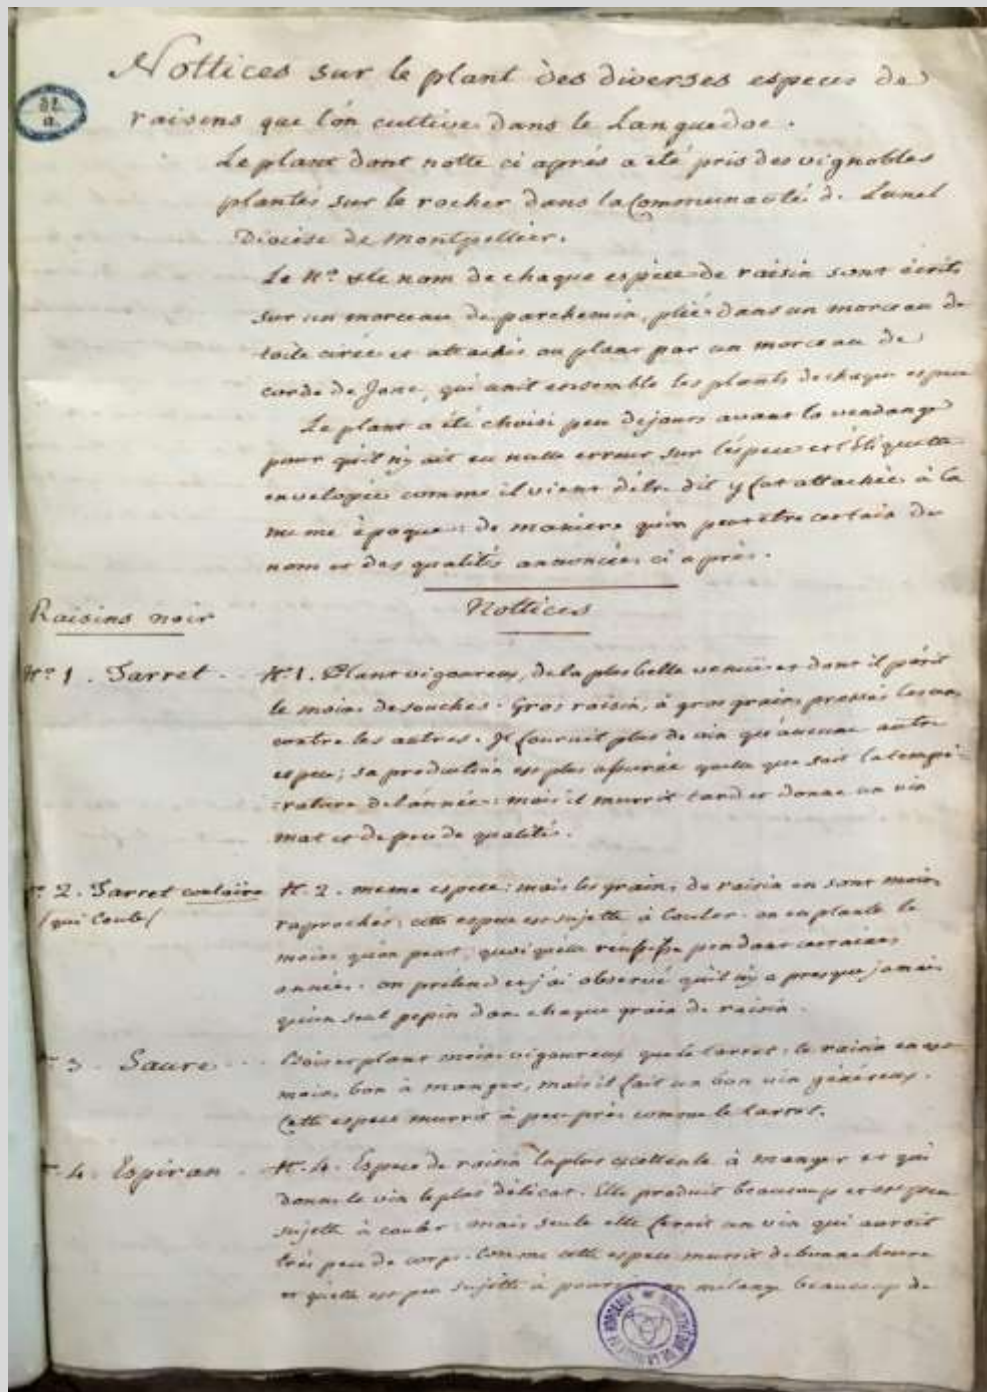 Nottices sur le plant des diverses especes de
raisins que l'on cultive dans le Languedoc.
Le plant dont notte ci aprés a eté pris des vignobles
plantés sur le rocher dans la Communauté de Lunel
Diocèse de Montpellier.
Le N.º & le nom de chaque espèce de raisin sont écrits
sur un morceau de parchemin, plié dans un morceau de
toile cirée et attachés au plant par un morceau de
corde de Jonc, qui unit ensemble les plants de chaque espece
Le plant a été choisi peu de jours avant la vendange
pour qu'il n'y ait eu nulle erreur sur l'espece et l'Etiquette
envelopée comme il vient d'être dit y fut attachée à la
meme èpoque: de maniere qu'on peut etre certain du
nom et des qualités annoncées ci aprés.
Nottices
Raisins noir
N.º 1. Tarret
N.1. Plant vigoureux, de la plus belle venüe et dont il périt
le moins de souches. Gros raisin, à gros grains pressés les uns
contre les autres. Il fournit plus de vin qu'aucune autre
espece; sa production est plus assurée quelle que soit la tempé-
rature de l'année: mais il murrit tard et donne un vin
mat et de peu de qualités.
2. Tarret coulaire
/qui Coule/
N. 2. meme espece: mais les grains de raisin en sont moins
raprochés; cette espece est sujette à Couler. on en plante le
moins qu'on peut, quoiqu'elle réussisse pendant certaines
années. on prétend et j'ai observé qu'il n'y a presque jamais
qu'un seul pepin dans chaque grain de raisin.
3. Saure
Bois et plant moins vigoureux que le tarret; le raisin en est
moins bon à manger, mais il fait un bon vin généreux.
Cette espece murrit à peu prés comme le tarret.
4. Espiran
N. 4. Espece de raisin la plus excellente à manger et qui
donne le vin le plus délicat. Elle produit beaucoup et est peu
sujette à couler: mais seule elle feroit un vin qui auroit
trés peu de corps. Comme cette espece murrit de bonne heure
et qu'elle est peu sujette à pourrir on melange beaucoup de